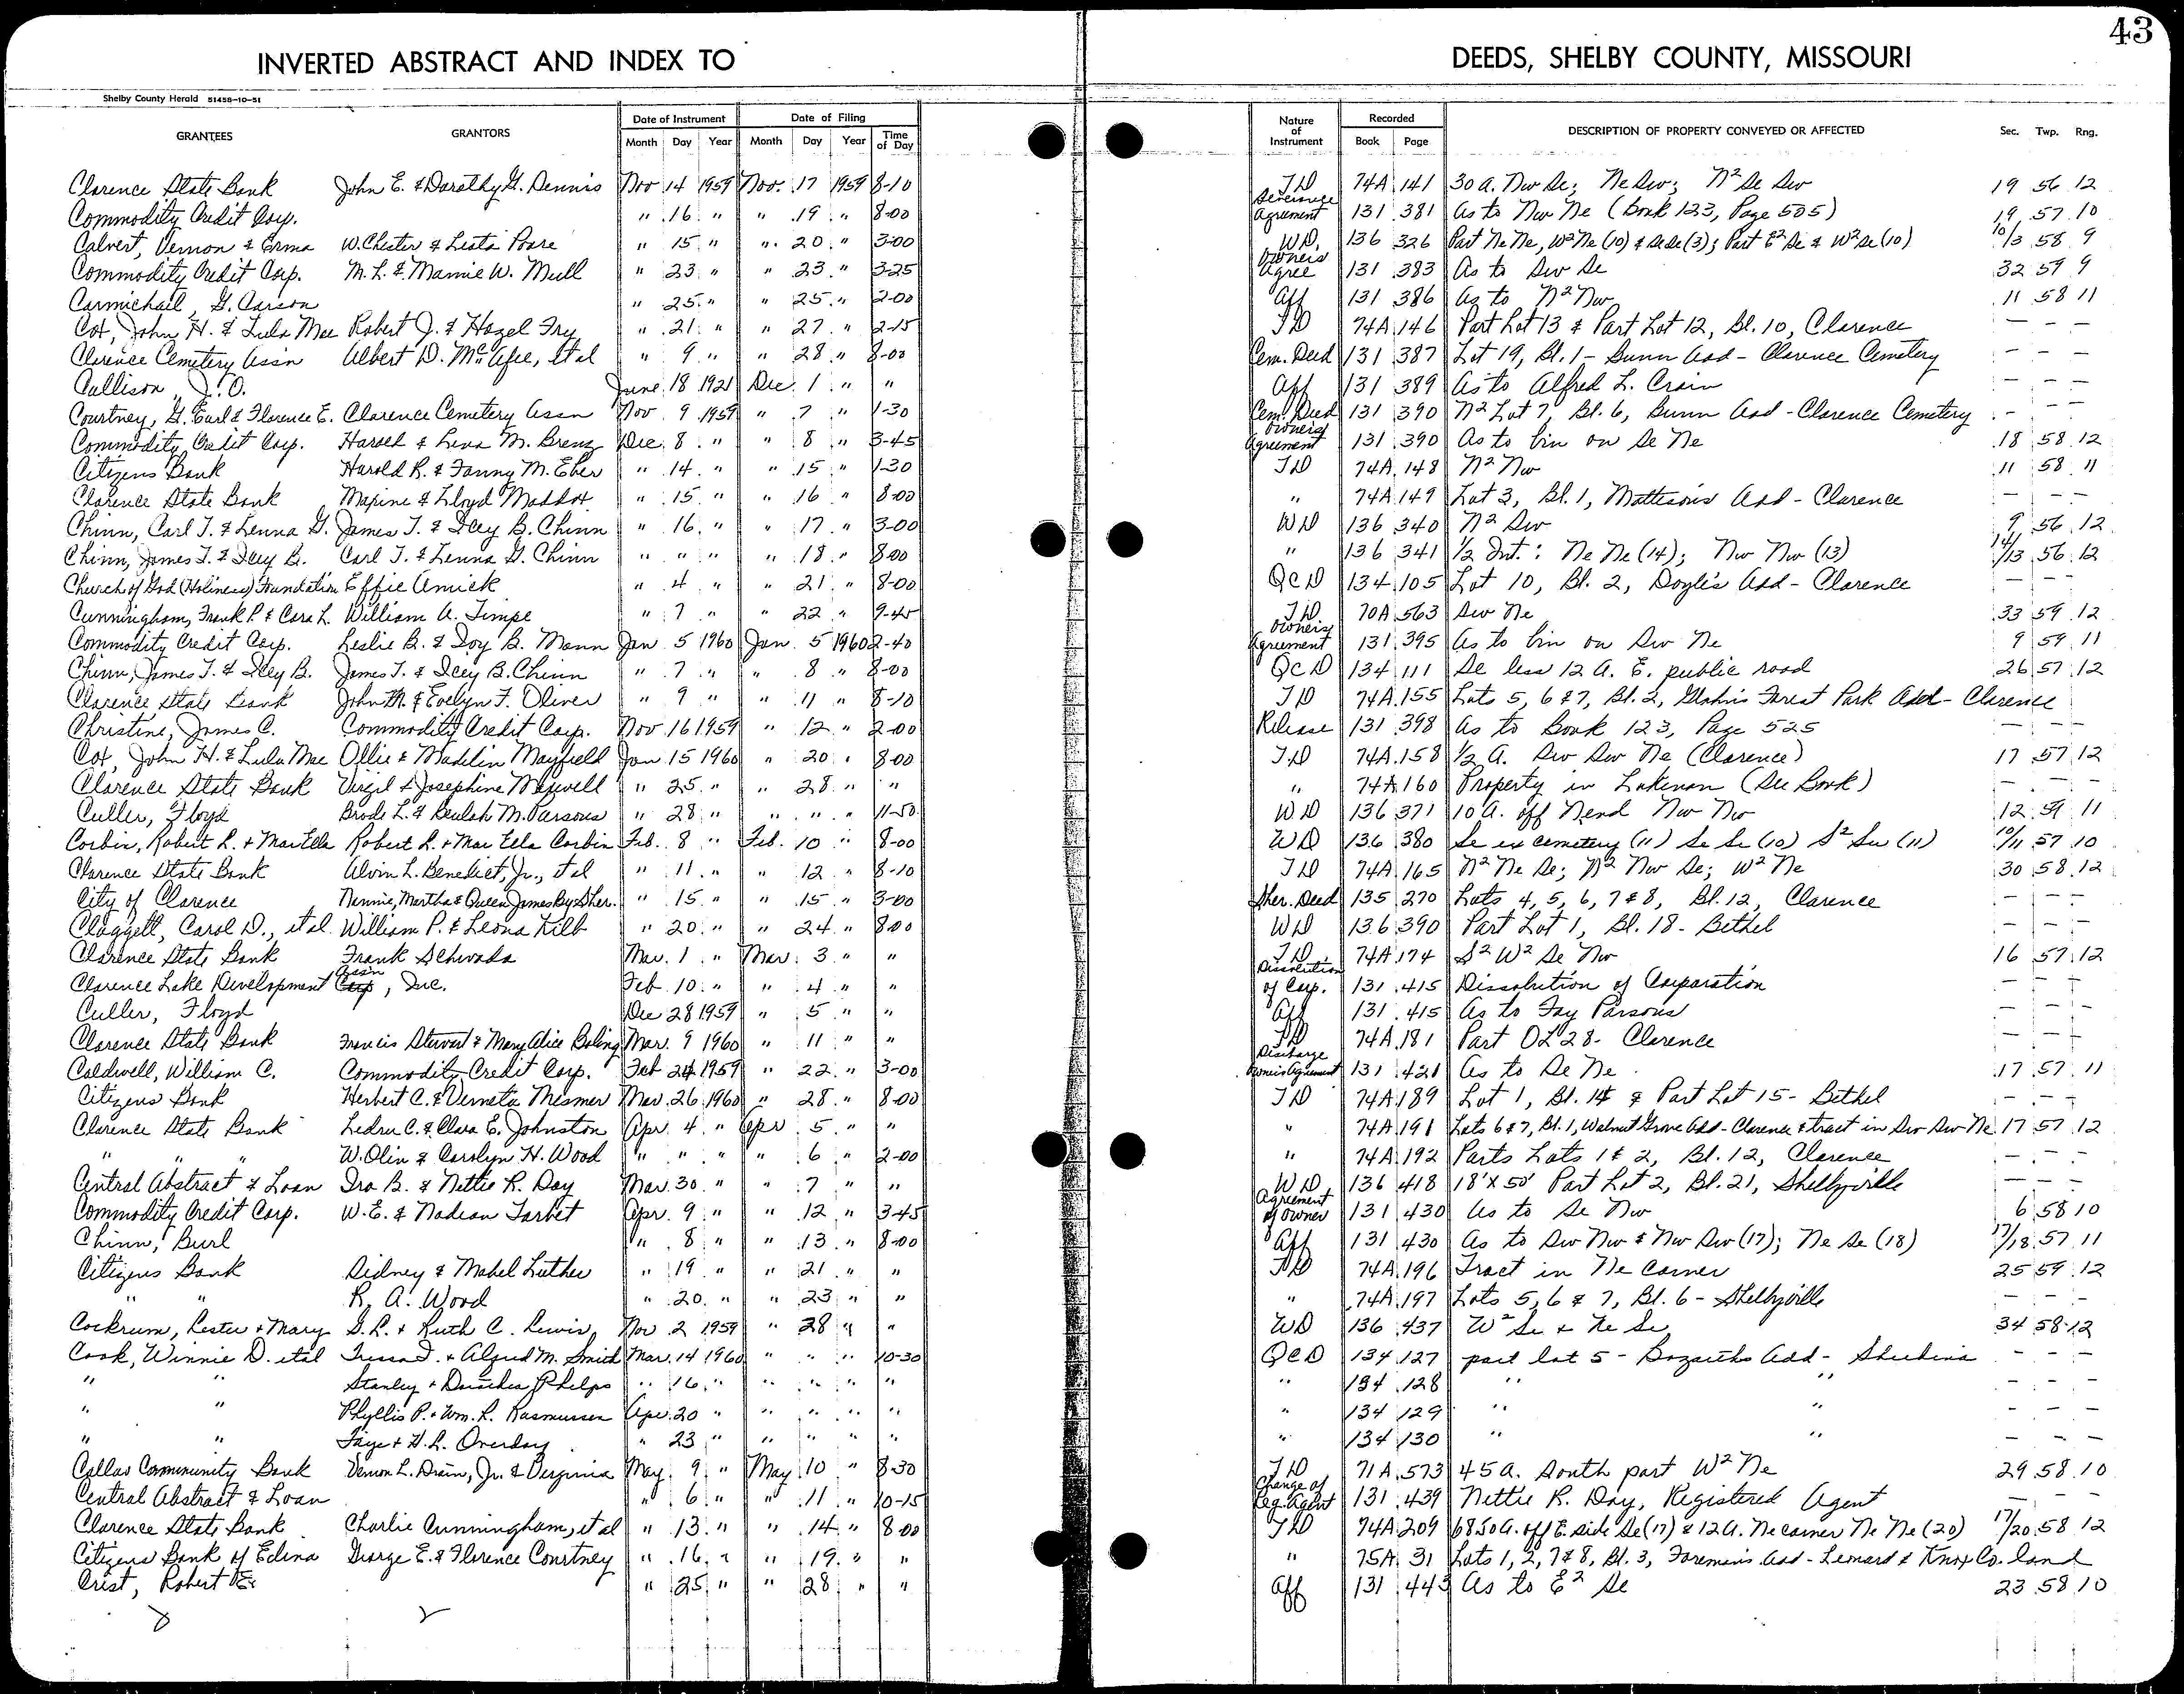 43
INVERTED ABSTRACT AND INDEX TO DEEDS, SHELBY COUNTY, MISSOURI
Shelby County Herald 51458-10-51
GRANTEES GRANTORS Date of Instrument Date of Filing Nature of Instrument Recorded DESCRIPTION OF PROPERTY CONVEYED OR AFFECTED Sec. Twp. Rng.
Month Day Year Month Day Year Time of Day Book Page
Clarence State Bank John E. & Dorothy G. Dennis Nov 14 1959 Nov. 17 1959 8-10 TD 74A 141 30 a. Nw Se; Ne Sw; N² Se Sw 19 56 12
Commodity Credit Corp. " 16 " " 19 " 8-00 Severance Agreement 131 381 As to Nw Ne (Book 123, Page 505) 19 57 10
Calvert, Vernon & Erma W. Chester & Lesta Poore " 15 " " 20 " 3-00 WD. 136 326 Part Ne Ne, W² Ne (10) & Se Se (3); Part E² Se & W² Se (10) 10/3 58 9
Commodity Credit Corp. M. L. & Mannie W. Mull " 23 " " 23 " 3-25 Owners Agree 131 383 As to Sw Se 32 59 9
Carmichael, G. Carson " 25 " " 25 " 2-00 Aff 131 386 As to N² Nw 11 58 11
Cox, John H. & Lula Mae Robert J. & Hazel Fry " 21 " " 27 " 2-15 TD 74A 146 Part Lot 13 & Part Lot 12, Bl. 10, Clarence — — —
Clarence Cemetery Assn Albert D. McAfee, et al " 9 " " 28 " 8-00 Cem. Deed 131 387 Lot 19, Bl. 1 - Bunn Add - Clarence Cemetery — — —
Cullison, J. O. June 18 1921 Dec. 1 " " Aff 131 389 As to Alfred L. Crain — — —
Courtney, G. Earl & Florence E. Clarence Cemetery Assn Nov 9 1959 " 7 " 1-30 Cem. Deed 131 390 N² Lot 7, Bl. 6, Bunn Add - Clarence Cemetery — — —
Commodity Credit Corp. Harold & Lena M. Brenz Dec. 8 " " 8 " 3-45 Owners Agreement 131 390 As to bin on Se Ne 18 58 12
Citizens Bank Harold R. & Fanny M. Eber " 14 " " 15 " 1-30 TD 74A 148 N² Nw 11 58 11
Clarence State Bank Maxine & Lloyd Maddox " 15 " " 16 " 8-00 " 74A 149 Lot 3, Bl. 1, Mattison's Add - Clarence — — —
Chinn, Carl T. & Lenna G. James T. & Icey B. Chinn " 16 " " 17 " 3-00 WD 136 340 N² Sw 9 56 12
Chinn, James T. & Icey B. Carl T. & Lenna G. Chinn " " " " 18 " 8-00 " 136 341 1/2 Int.: Ne Ne (14); Nw Nw (13) 14/13 56 12
Church of God (Holiness) Foundation Effie Amick " 4 " " 21 " 8-00 QCD 134 105 Lot 10, Bl. 2, Doyle's Add - Clarence — — —
Cunningham, Frank P. & Cora L. William A. Timpe " 7 " " 22 " 9-45 TD 70A 563 Sw Ne 33 59 12
Commodity Credit Corp. Leslie B. & Joy B. Mann Jan 5 1960 Jan. 5 1960 2-40 Owners Agreement 131 395 As to bin on Sw Ne 9 59 11
Chinn, James T. & Icey B. James T. & Icey B. Chinn " 7 " " 8 " 8-00 QCD 134 111 Se less 12 A. E. public road 26 57 12
Clarence State Bank John M. & Evelyn F. Oliver " 9 " " 11 " 8-10 TD 74A 155 Lots 5, 6 & 7, Bl. 2, Glahn's Forest Park Add - Clarence
Christine, James C. Commodity Credit Corp. Nov 16 1959 " 12 " 2-00 Release 131 398 As to Book 123, Page 525 — — —
Cox, John H. & Lula Mae Ollie & Madelin Mayfield Jan 15 1960 " 20 " 8-00 TD 74A 158 1/2 A. Sw Sw Ne (Clarence) 17 57 12
Clarence State Bank Virgil & Josephine Maxwell " 25 " " 28 " " " 74A 160 Property in Lakenan (See Book) — — —
Culler, Floyd Brode L. & Beulah M. Parsons " 28 " " " " 11-50 WD 136 371 10 A. off N end Nw Nw 12 59 11
Corbin, Robert L. & Mar Ella Robert L. & Mar Ella Corbin Feb. 8 " Feb. 10 " 8-00 WD 136 380 Se ex cemetery (11) Se Se (10) S² Sw (11) 10/11 57 10
Clarence State Bank Alvin L. Benedict, Jr., et al " 11 " " 12 " 8-10 TD 74A 165 N² Ne Se; N² Nw Se; W² Ne 30 58 12
City of Clarence Nennie, Martha & Queen James By Sher. " 15 " " 15 " 3-00 Sher. Deed 135 270 Lots 4, 5, 6, 7 & 8, Bl. 12, Clarence — — —
Claggett, Carol D., et al William P. & Leona Kilb " 20 " " 24 " 8-00 WD 136 390 Part Lot 1, Bl. 18 - Bethel — — —
Clarence State Bank Frank Schwada Mar. 1 " Mar. 3 " " TD 74A 174 S² W² Se Nw 16 57 12
Clarence Lake Development Corp Assn, Inc. Feb 10 " " 4 " " Dissolution of Corp. 131 415 Dissolution of Corporation — — —
Culler, Floyd Dec 28 1959 " 5 " " Aff 131 415 As to Fay Parsons — — —
Clarence State Bank Francis Stewart & Mary Alice Boling Mar. 9 1960 " 11 " " TD 74A 181 Part OL 28 - Clarence — — —
Caldwell, William C. Commodity Credit Corp. Feb 24 1959 " 22 " 3-00 Discharge Owners Agreement 131 421 As to Se Ne 17 57 11
Citizens Bank Herbert C. & Verneta Mesmer Mar. 26 1960 " 28 " 8-00 TD 74A 189 Lot 1, Bl. 14 & Part Lot 15 - Bethel — — —
Clarence State Bank Ledru C. & Clara E. Johnston Apr. 4 " Apr 5 " " " 74A 191 Lots 6 & 7, Bl. 1, Walnut Grove Add - Clarence & tract in Sw Sw Ne 17 57 12
" " " W. Olin & Carolyn H. Wood " " " " 6 " 2-00 " 74A 192 Parts Lots 1 & 2, Bl. 12, Clarence — — —
Central Abstract & Loan Ira B. & Nettie R. Day Mar. 30 " " 7 " " WD 136 418 18' X 50' Part Lot 2, Bl. 21, Shelbyville — — —
Commodity Credit Corp. W. E. & Nadean Tarbet Apr. 9 " " 12 " 3-45 Agreement of Owner 131 430 As to Se Nw 6 58 10
Chinn, Burl " 8 " " 13 " 8-00 Aff 131 430 As to Sw Nw & Nw Sw (17); Ne Se (18) 17/18 57 11
Citizens Bank Sidney & Mabel Luther " 19 " " 21 " " TD 74A 196 Tract in Ne Corner 25 59 12
" " R. A. Wood " 20 " " 23 " " " 74A 197 Lots 5, 6 & 7, Bl. 6 - Shelbyville — — —
Cockrum, Lester & Mary G. L. & Ruth C. Lewis Nov 2 1959 " 28 " " WD 136 437 W² Se & Ne Se 34 58 12
Cook, Winnie D. et al & Alfred M. Smith Mar. 14 1960 " " " 10-30 QCD 134 127 part lot 5 - Bozarths Add - Shelbina — — —
" " Stanley & Phelps " 16 " " " " " " 134 128 " " — — —
" " Phyllis P. & Wm. L. Rasmussen Apr. 20 " " " " " " 134 129 " " — — —
" " Faye & H. L. Overday " 23 " " " " " " 134 130 " " — — —
Callao Community Bank Vernon L. Drain, Jr. & Virginia May 9 " May 10 " 8-30 TD 71A 573 45 A. South part W² Ne 29 58 10
Central Abstract & Loan " 6 " " 11 " 10-15 Change of Reg. Agent 131 439 Nettie R. Day, Registered Agent — — —
Clarence State Bank Charlie Cunningham, et al " 13 " " 14 " 8-00 TD 74A 209 68.50 A. off E. side Se (17) & 12 A. Ne corner Ne Ne (20) 17/20 58 12
Citizens Bank of Edina George E. & Florence Courtney " 16 " " 19 " " " 75A 31 Lots 1, 2, 7 & 8, Bl. 3, Foreman's Add - Leonard & Knox Co. land
Crist, Robert E. " 25 " " 28 " " Aff 131 443 As to E² Se 23 58 10